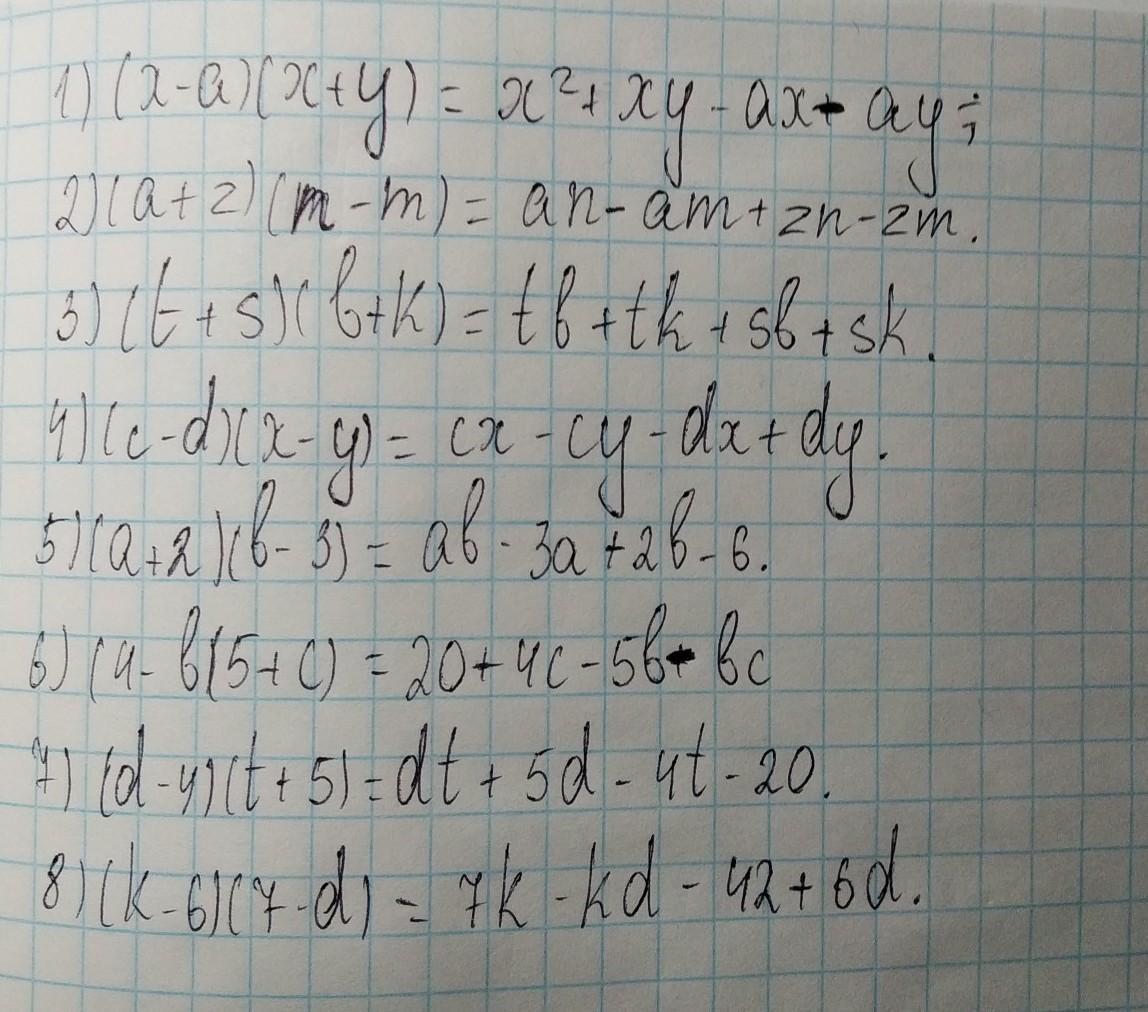 1) (x-a)(x+y) = x²+ xy - ax - ay;
2) (a+z) (n-m) = an - am + zn - zm.
3) (t+s)(b+k) = tb + tk + sb + sk.
4) (c-d)(x-y) = cx - cy - dx + dy.
5) (a+2)(b-3) = ab - 3a + 2b - 6.
6) (4-b)(5+c) = 20 + 4c - 5b - bc
7) (d-4)(t+5) = dt + 5d - 4t - 20.
8) (k-6)(7-d) = 7k - kd - 42 + 6d.